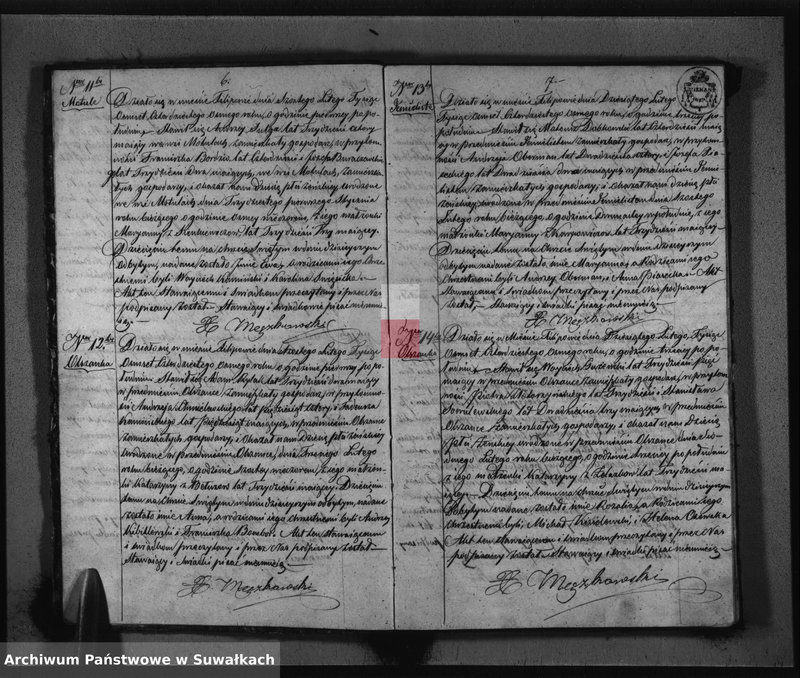 6.
Nrm 11ty
Motule
Działo się w mieście Filipowie dnia Szostego Lutego Tysiąc
Osmset Czterdziestego Osmego roku, o godzinie pierwszy po po
łudniu. Stawił się Andrzej lat Trzydzieści cztery
mający we wsi Motulach, zamieszkały gospodarz, w przytom
ności Franciszka lat Czterdzieści i Józefa
lat Trzydzieści Dwa mających, we wsi Motulach, zamieszka
łych gospodarzy, i okazał nam Dziecię płci żeńskiey urodzone
we wsi Motulach dnia Trzydziestego pierwszego Stycznia
roku bieżącego o godzinie Osmey wieczorem, z jego małżonki
Maryanny z lat Trzydzieści Trzy mającey.
Dziecięciu temu na Chrzcie świętym w dniu dzisiejszym
odbytym, nadane zostało Imie Ewa, a rodzicami jego Chrze
stnemi byli Woyciech Kamiński i Karolina
Akt ten Stawaiącemu i świadkom przeczytany i przez Nas
podpisany został. Stawaiący i świadkowie pisać nieumie
ią.
X. Męczkowski
Nrm 12ty
Olszanka
Działo się w mieście Filipowie dnia Szostego Lutego Tysiąc
Osmset Czterdziestego Osmego roku, o godzinie pierwszy po po
łudniu. Stawił się Adam lat Trzydzieści mający
w przedmieściu Olszance zamieszkały gospodarz, w przytomno
ści Andrzeja Chmielewskiego lat Trzydzieści cztery, i Tadeusza
Kamińskiego lat mających, w przedmieściu Olszance
zamieszkałych gospodarzy, i okazał nam Dziecię płci żeńskiey
urodzone w przedmieściu Olszance, dnia Lutego
roku bieżącego, o godzinie Szostey wieczorem, z jego małżon
ki Katarzyny z lat Trzydzieści mającey. Dziecięciu
temu na Chrzcie Świętym w dniu dzisiejszym odbytym, nadane
zostało imie Anna, a rodzicami jego chrzestnemi byli Andrzey
i Franciszka Akt ten stawaiącemu
i świadkom przeczytany i przez Nas podpisany został.
Stawaiący i świadki pisać nieumieią.
X. Męczkowski
7.
Nrm 13ty
Działo się w mieście Filipowie dnia Dziesiątego Lutego
Tysiąc Osmset Czterdziestego Osmego roku, o godzinie trzeciey po
południu. Stawił się lat Czterdzieści mają
cy w przedmieściu zamieszkały gospodarz, w przytom
ności Andrzeja Oberman lat Dwadzieścia cztery, i Józefa Pia
seckiego lat Dwadzieścia mających w przedmieściu
zamieszkałych gospodarzy, i okazał nam dziecię płci
żeńskiey urodzone w przedmieściu dnia Szostego
Lutego roku bieżącego o godzinie Dwunastey w południe, z jego
małżonki Maryanny z Karpowiczow lat Trzydzieści mającey.
Dziecięciu temu na Chrzcie Świętym w dniu dzisiejszym
odbytym nadane zostało imie Maryanna a Rodzicami jego
Chrzestnemi byli Andrzey Oberman, i Anna Piasecka. Akt
Stawaiącemu i świadkom przeczytany i przez Nas podpisany
został. Stawaiący i świadki pisać nieumieią.
X. Męczkowski
14ty
Olszanka
Działo się w Mieście Filipowie dnia Dziesiątego Lutego Tysiąc
Osmset Czterdziestego Osmego roku, o godzinie trzeciey po po
łudniu. Stawił się Woyciech lat Trzydzieści
mający w przedmieściu Olszance zamieszkały gospodarz, w przytom
ności Piotra lat Trzydzieści i Stanisława
lat Dwadzieścia trzy mających, w przedmieściu
Olszance zamieszkałych gospodarzy, i okazał nam Dziecię
płci żeńskiey urodzone w przedmieściu Olszance dnia
Lutego roku bieżącego, o godzinie trzeciey po południu
z jego małżonki Katarzyny z lat Trzydzieści ma
jącey. Dziecięciu temu na chrzcie Świętym w dniu dzisiejszym
odbytym nadane zostało imie Rozalia, a Rodzicami jego
chrzestnemi byli Michał i Helena
Akt ten Stawaiącemu i świadkom przeczytany i przez Nas
podpisany został. Stawaiący i świadki pisać nieumieią.
X. Męczkowski
Archiwum Państwowe w Suwałkach